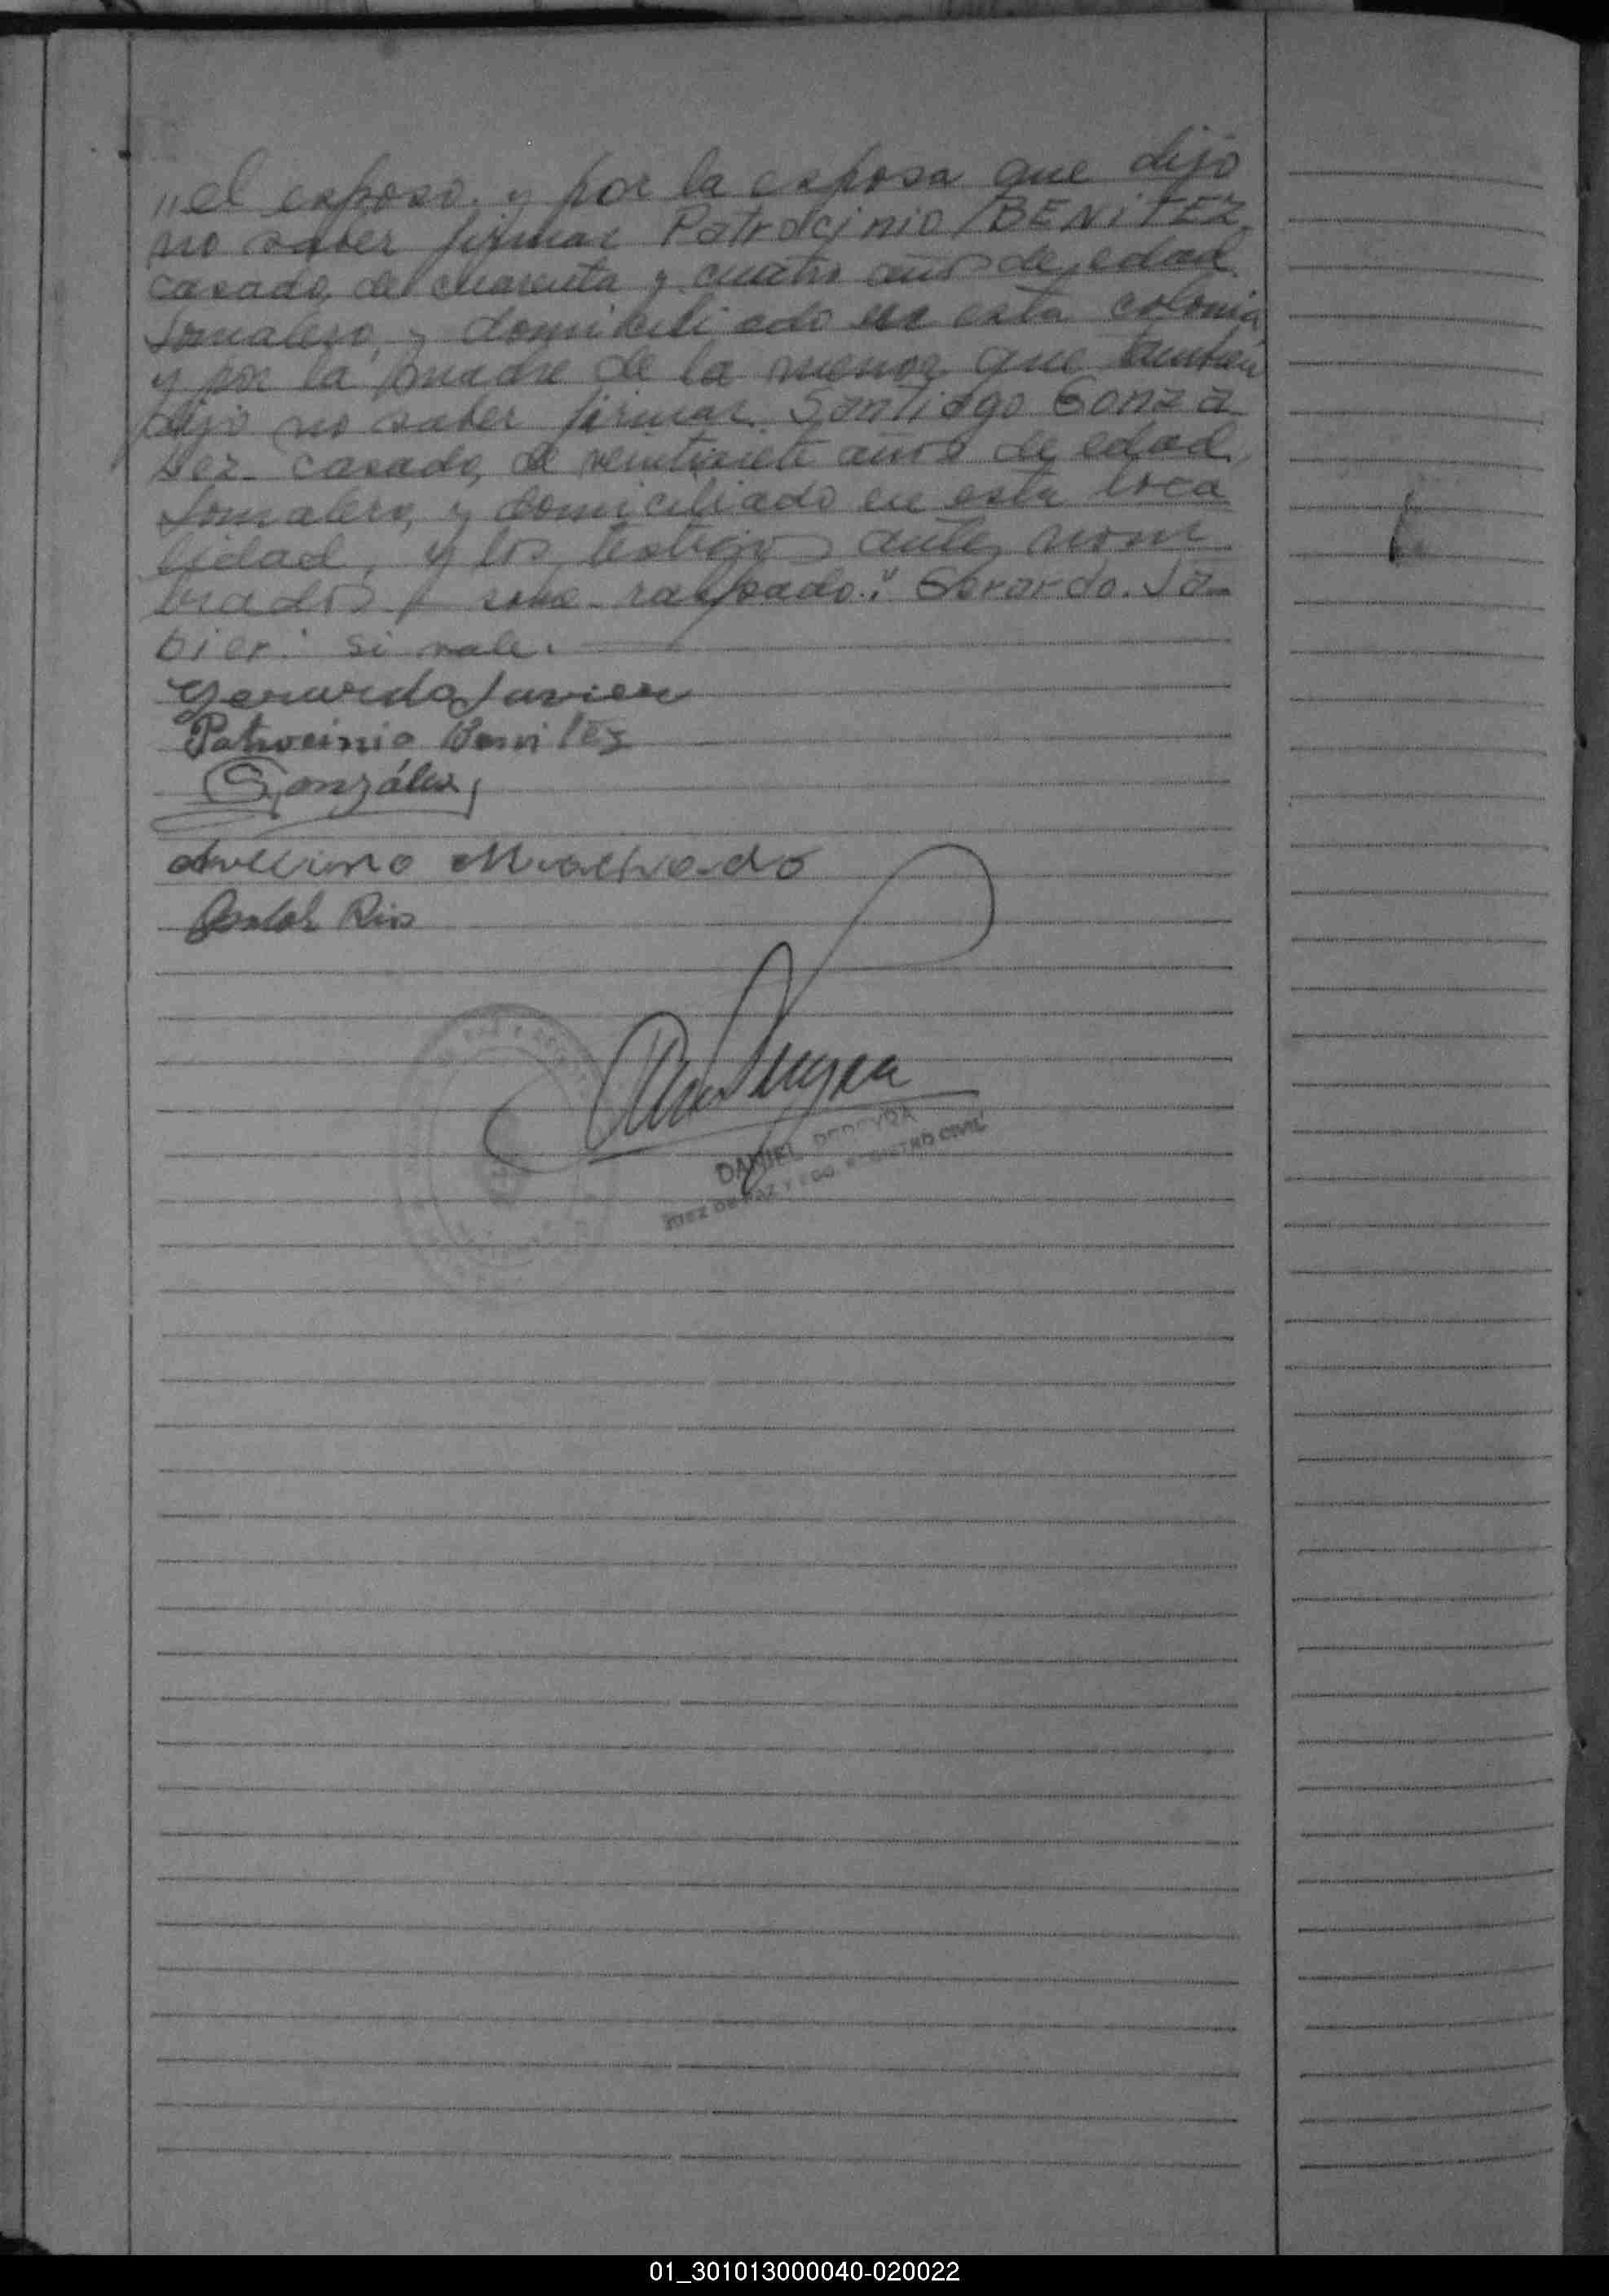 "el esposo. y por la esposa que dijo
no saber firmar Patrocinio BENITEZ
casado, de cuarenta y cuatro años de edad
Jornalero, y domiciliado en esta colonia
y por la madre de la menor que también
dijo no saber firmar. Santiago Gonza
lez. casado, de veintisiete años de edad,
Jornalero, y domiciliado en esta loca
lidad, y los testigos antes nom
brados sobre raspado:" Gerardo. Ja-
bier: si vale.
Gerardo Javier
Patrocinio Benitez
SGonzález
Avelino Machado
Rios
DANIEL PEREYRA
JUEZ DE PAZ Y EGO REGISTRO CIVIL
01_301013000040-020022